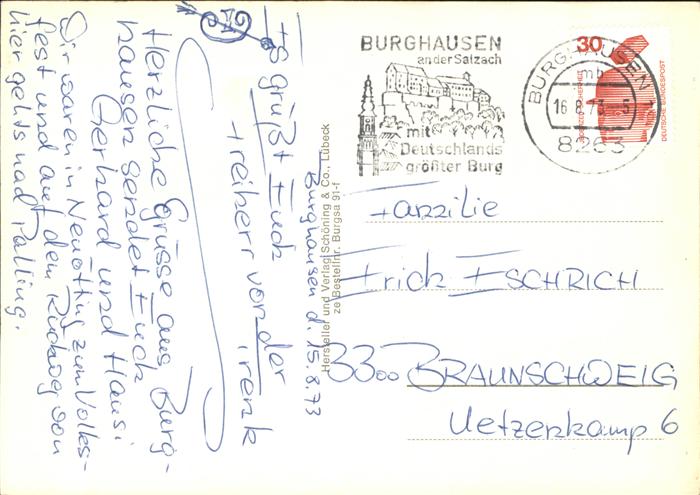 Burghausen d. 15.8.73
Es grüßt Euch
Freiherr von der
Trenk
Herzliche Grüsse aus Burg-
hausen sendet Euch
Gerhard und Hansi
Wir waren in Neuötting zum Volks-
fest und auf dem Rückweg von
hier gehts nach Palling.
Hersteller und Verlag Schöning & Co., Lübeck
Bestellnr. Burgsa 91-f
BURGHAUSEN
an der Salzach
mit
Deutschlands
größter Burg
BURGHAUSEN
mb
16.8.73-5
8263
30
DEUTSCHE BUNDESPOST
Familie
Erich ESCHRICH
3300 BRAUNSCHWEIG
Uetzenkamp 6